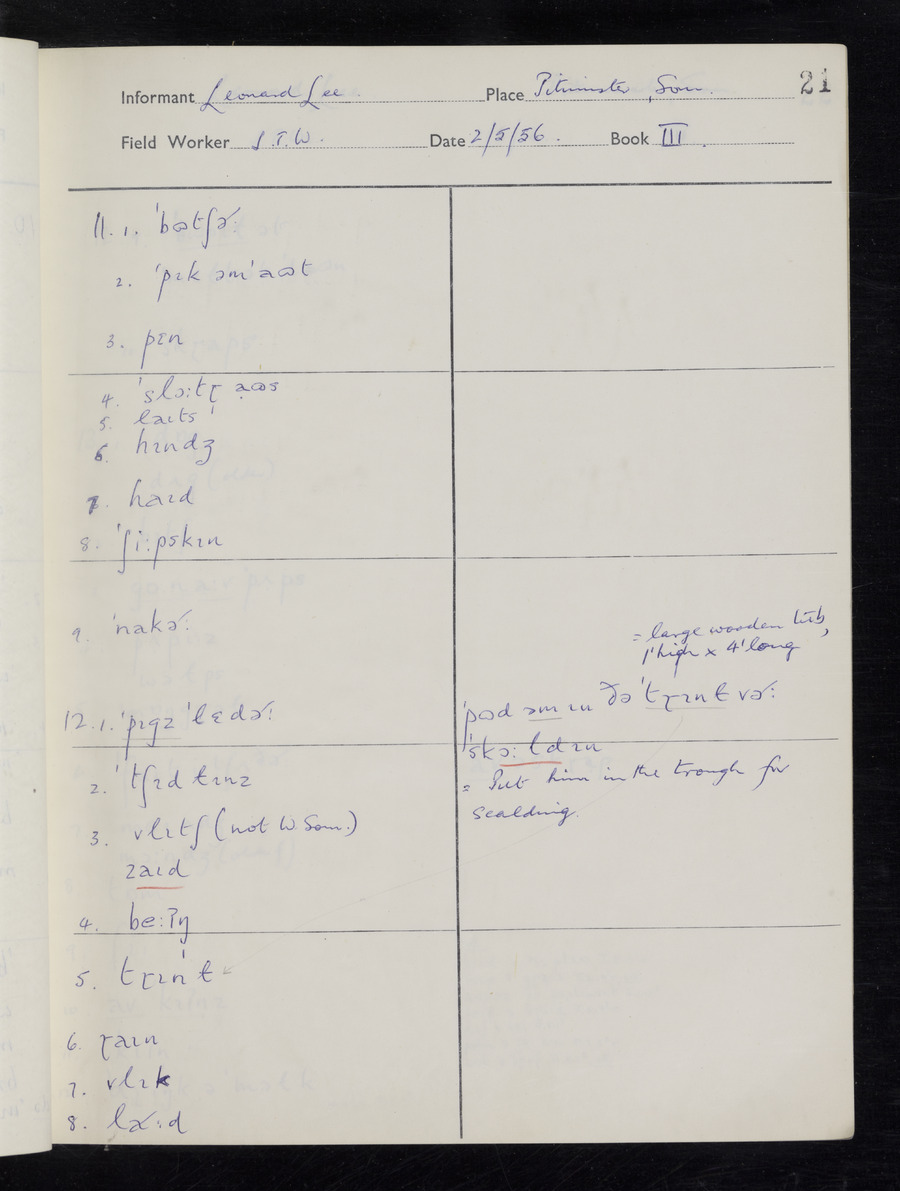 21
Informant Leonard Lee. Place Pitminster, Som.
Field Worker S.T.W. Date 2/5/56. Book III.
11. 1. ˈbɷtʃɚ:
2. ˈpɪk əmˈaɷt
3. pɛn
4. ˈslɔ:tɽ aɷs
5. laɪts
6. hɪndʒ
7. haɪd
8. ˈʃi:pskɪn
9. ˈnakɚ:
= large wooden tub,
1' high x 4' long
12. 1. ˈpɪgz ˈlɛdɚ:
ˈpɷd əm ɪn ðə ˈtɽɪnt vɚ:
ˈskɔ:ɫdɪn
= Put him in the trough for
scalding.
2. ˈtʃɪdɫɪnz
3. vlɪtʃ (not W. Som.)
zaɪd
4. be:ʔŋ
5. tɽɪnt
6. ɽaɪn
7. vlɪk
8. lɚ:d